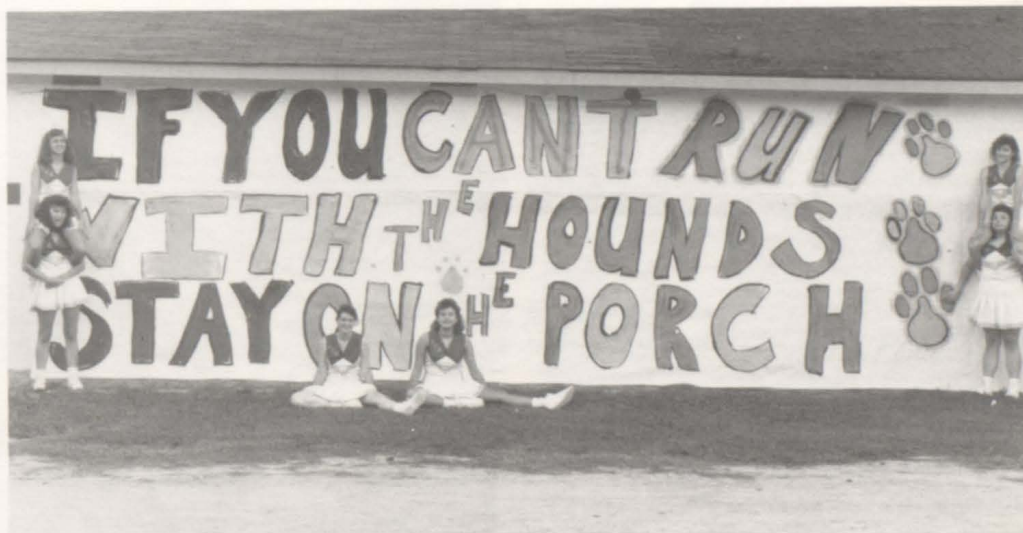 IF YOU CANT RUN
WITH THE HOUNDS
STAY ON THE PORCH